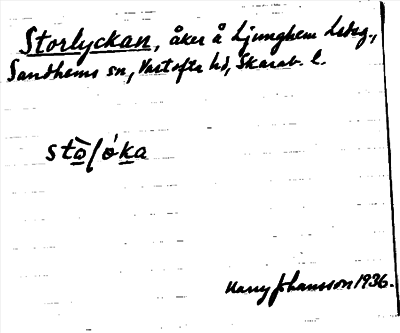 Storlyckan, åker å Ljunghem
Sandhems sn, Vartofta hd, Skarab. l.
Harry Johansson 1936.